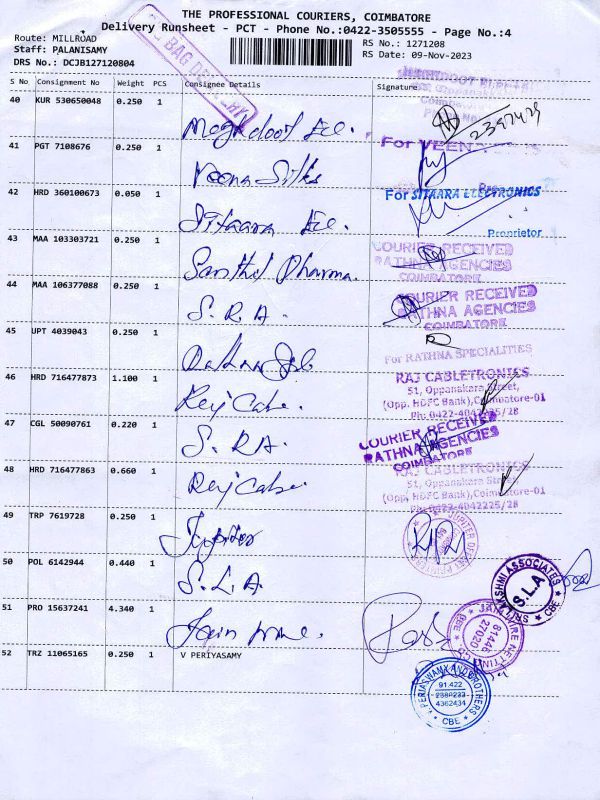 THE PROFESSIONAL COURIERS, COIMBATORE
Delivery Runsheet - PCT - Phone No.:0422-3505555 - Page No.:4
Route: MILLROAD
Staff: PALANISAMY
DRS No.: DCJB127120804
RS No.: 1271208
RS Date: 09-Nov-2023
S No Consignment No Weight PCS Consignee Details Signature
40 KUR 530650048 0.250 1 Meghdoot Ele.
41 PGT 7108676 0.250 1 Veena Silks
For VEENA
42 HRD 360100673 0.050 1 Sitaara Ele.
For SITAARA ELECTRONICS
Proprietor
43 MAA 103303721 0.250 1 Santhel Pharma.
COURIER RECEIVED
RATHNA AGENCIES
COIMBATORE
44 MAA 106377088 0.250 1 S. R. A.
COURIER RECEIVED
RATHNA AGENCIES
COIMBATORE
45 UPT 4039043 0.250 1
For RATHNA SPECIALITIES
46 HRD 716477873 1.100 1 Raj Cable.
RAJ CABLETRONICS
51, Oppanakara Street,
(Opp. HDFC Bank),Coimbatore-01
Ph: 0422-4042225/28
47 CGL 50090761 0.220 1 S. RA.
COURIER RECEIVED
RATHNA AGENCIES
COIMBATORE
48 HRD 716477863 0.660 1 Raj Cable.
RAJ CABLETRONICS
51, Oppanakara Street,
(Opp. HDFC Bank),Coimbatore-01
Ph:0422-4042225/28
49 TRP 7619728 0.250 1 Jupiter
50 POL 6142944 0.440 1 S. L. A.
SRI LAKSHMI ASSOCIATES
S.L.A
CBE
51 PRO 15637241 4.340 1 Jain wire.
52 TRZ 11065165 0.250 1 V PERIYASAMY
91.422
2380233
4362434
CBE